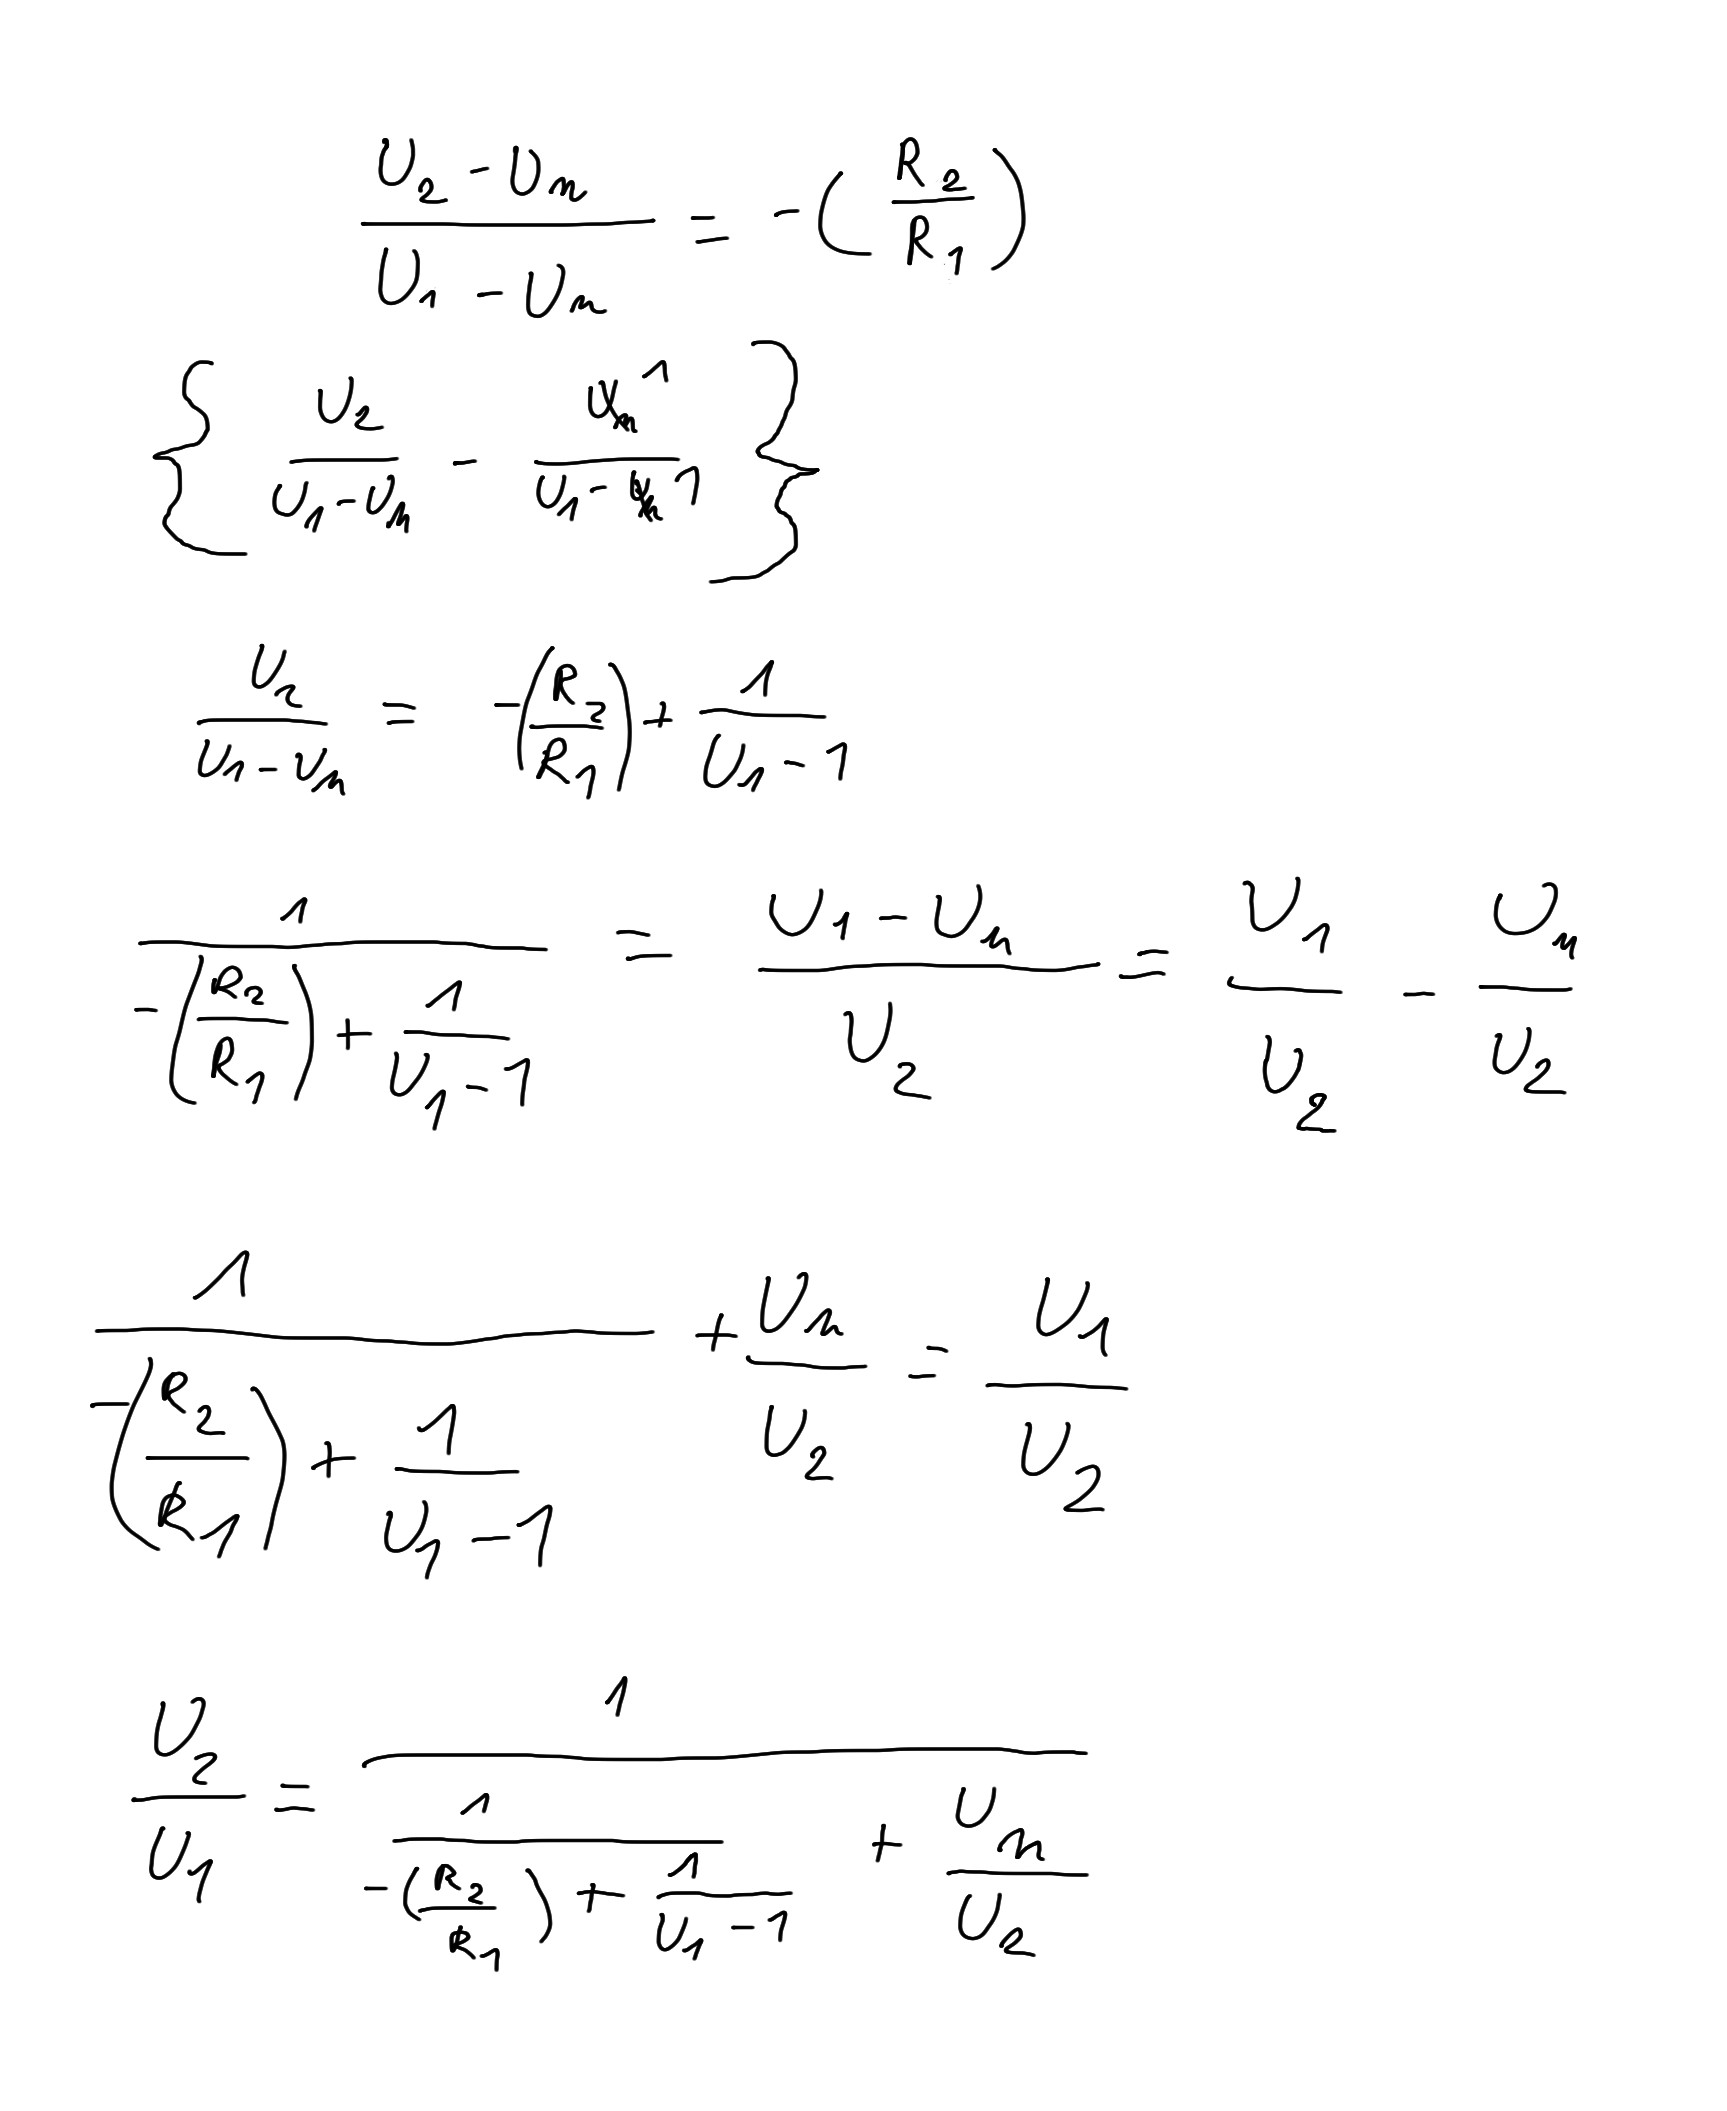 (U₂ - Uₙ)/(U₁ - Uₙ) = -(R₂/R₁)
{ U₂/(U₁ - Uₙ) - U̶ₙ̶ 1/(U₁ - U̶ₙ̶ 1) }
U₂/(U₁ - Uₙ) = -(R₂/R₁) + 1/(U₁ - 1)
1/(-(R₂/R₁) + 1/(U₁ - 1)) = (U₁ - Uₙ)/U₂ = U₁/U₂ - Uₙ/U₂
1/(-(R₂/R₁) + 1/(U₁ - 1)) + Uₙ/U₂ = U₁/U₂
U₂/U₁ = 1/(1/(-(R₂/R₁) + 1/(U₁ - 1)) + Uₙ/U₂)